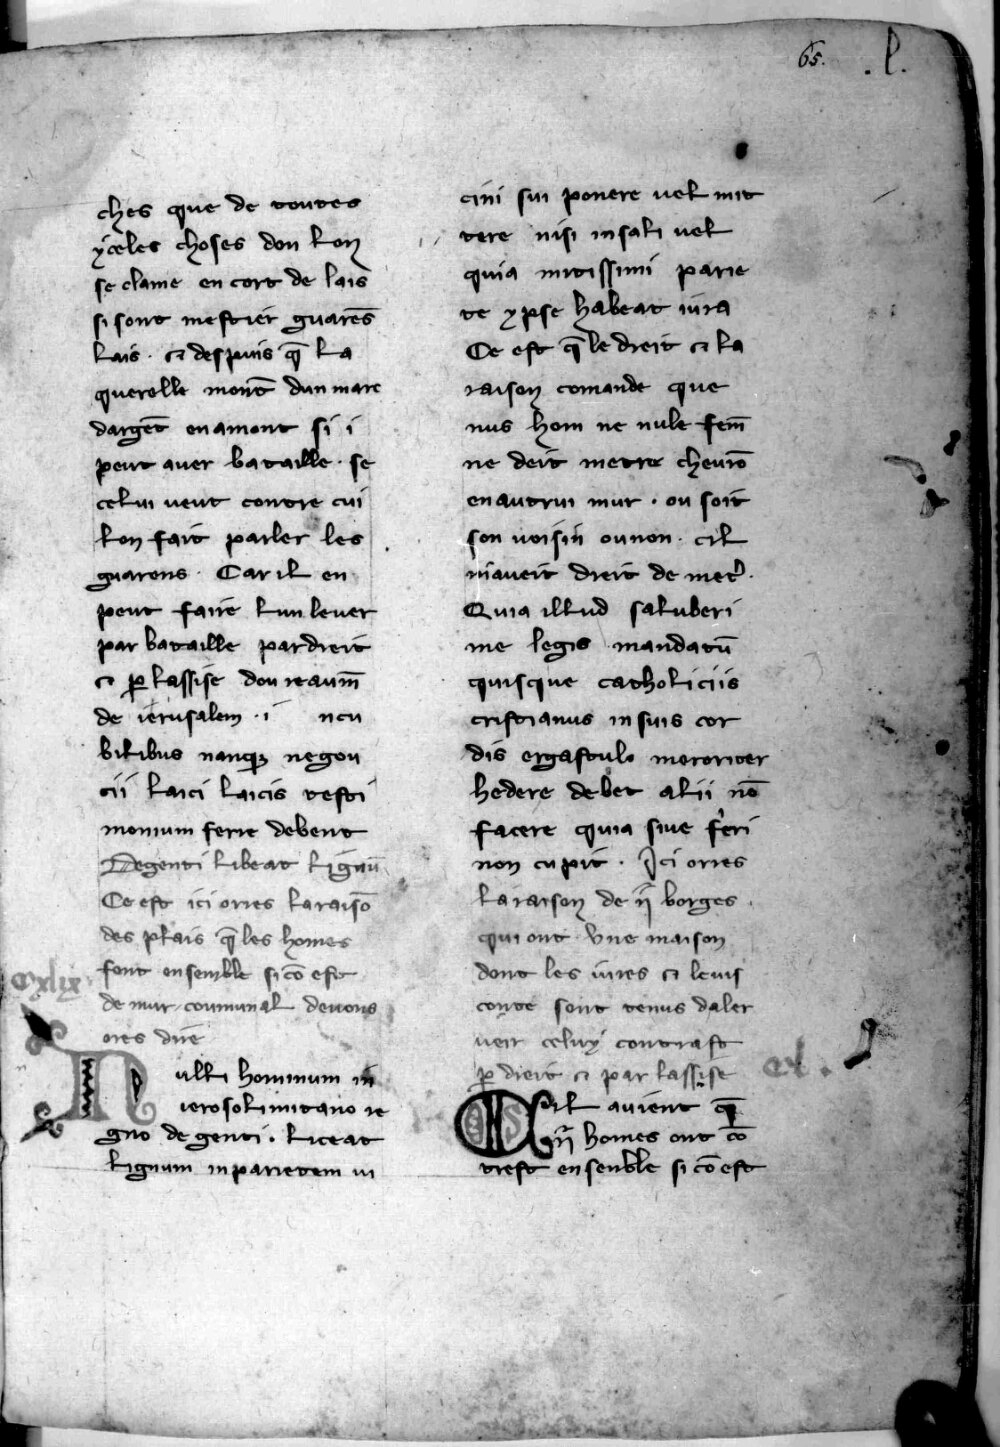 65. .l.
ches que de toutes
yceles choses don lon
se clame en cort de lais
si sont mestier guarēs
lais · et despuis q̄ la
querelle mont̄ dun marc
dargēt en amont si i
peut auer bataille · se
celui ueut contre cui
lon fait parler les
guarens · Car il en
peut faire lun leuer
par bataille par dreit
et ꝑ lassise dou reaum̄
de ierusalem · i ncu
bilibus nanq̄ negou
cii laici laicis testi
monium ferre debent
Degenti libeat lignū
Ce est ici orres la raisō
des plais q̄ les homes
font ensemble si cō est
de mur coumunal deuons
ores dire
cxlix
Nulli hominum in
ierosolimitano re
gno degenti · liceat
lignum in parietem ui
cini sui ponere uel mit
tere nisi in sali uel
quia mitissimi parie
te ypse habeat iura
Ce est q̄ le dreit et la
raison comande que
nus hom ne nule fem̄
ne deit metre cheurō
en autrui mur · ou soit
son uoisin ou non · cil
ni aueit dreit de met̉ ·
Quia illud saluberi
me legis mandatū
quisque catholiciis
cristianus in suis cor
dis ergastulo meroriter
hedere debet alii nō
facere quia siue f̉eri
non cupit · Ici orres
la raison de ij borges
qui ont vne maison
dont les iures et leuis
conte sont tenus daler
ueir celuy contrast
ꝑ dreit et par lassise
cl .
Sil auient q̄
ij homes ont cō
trest ensenble si cō est